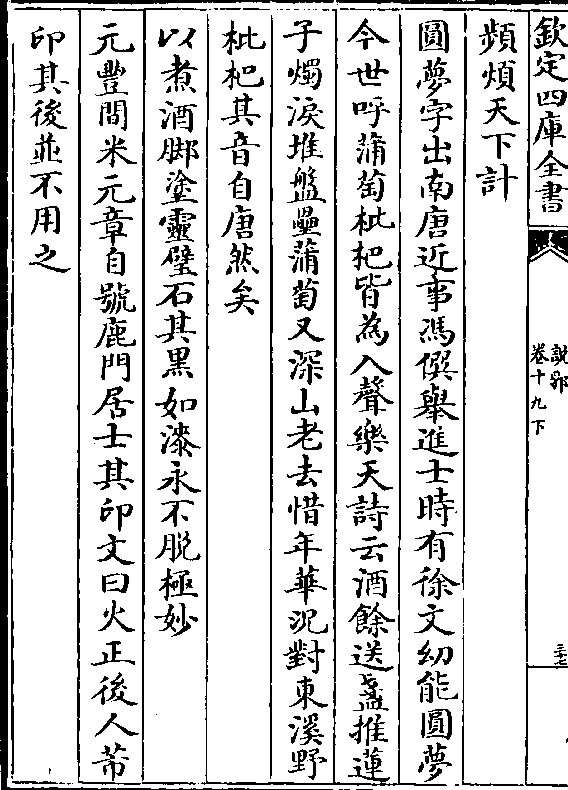 欽定四庫全書
說郛
卷十九下
三十七
頻煩天下計
圓夢字出南唐近事馮僎舉進士時有徐文幼能圓夢
今世呼蒲萄枇杷皆為入聲樂天詩云酒餘送盞推蓮
子燭淚堆盤壘蒲萄又深山老去惜年華況對東溪野
枇杷其音自唐然矣
以煮酒脚塗靈璧石其黒如漆永不脫極妙
元豐間米元章自號鹿門居士其印文曰火正後人芾
印其後並不用之